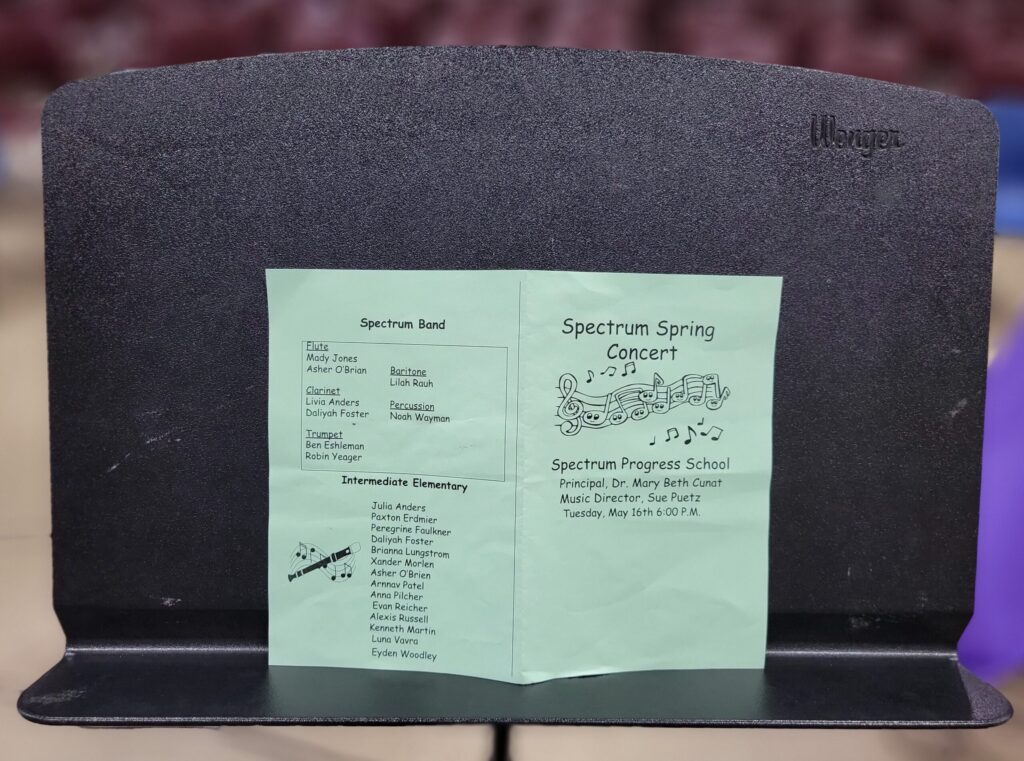 Wenger
Spectrum Band
Flute
Mady Jones
Asher O'Brian
Clarinet
Livia Anders
Daliyah Foster
Trumpet
Ben Eshleman
Robin Yeager
Baritone
Lilah Rauh
Percussion
Noah Wayman
Intermediate Elementary
Julia Anders
Paxton Erdmier
Peregrine Faulkner
Daliyah Foster
Brianna Lungstrom
Xander Morlen
Asher O'Brien
Arnnav Patel
Anna Pilcher
Evan Reicher
Alexis Russell
Kenneth Martin
Luna Vavra
Eyden Woodley
Spectrum Spring
Concert
Spectrum Progress School
Principal, Dr. Mary Beth Cunat
Music Director, Sue Puetz
Tuesday, May 16th 6:00 P.M.